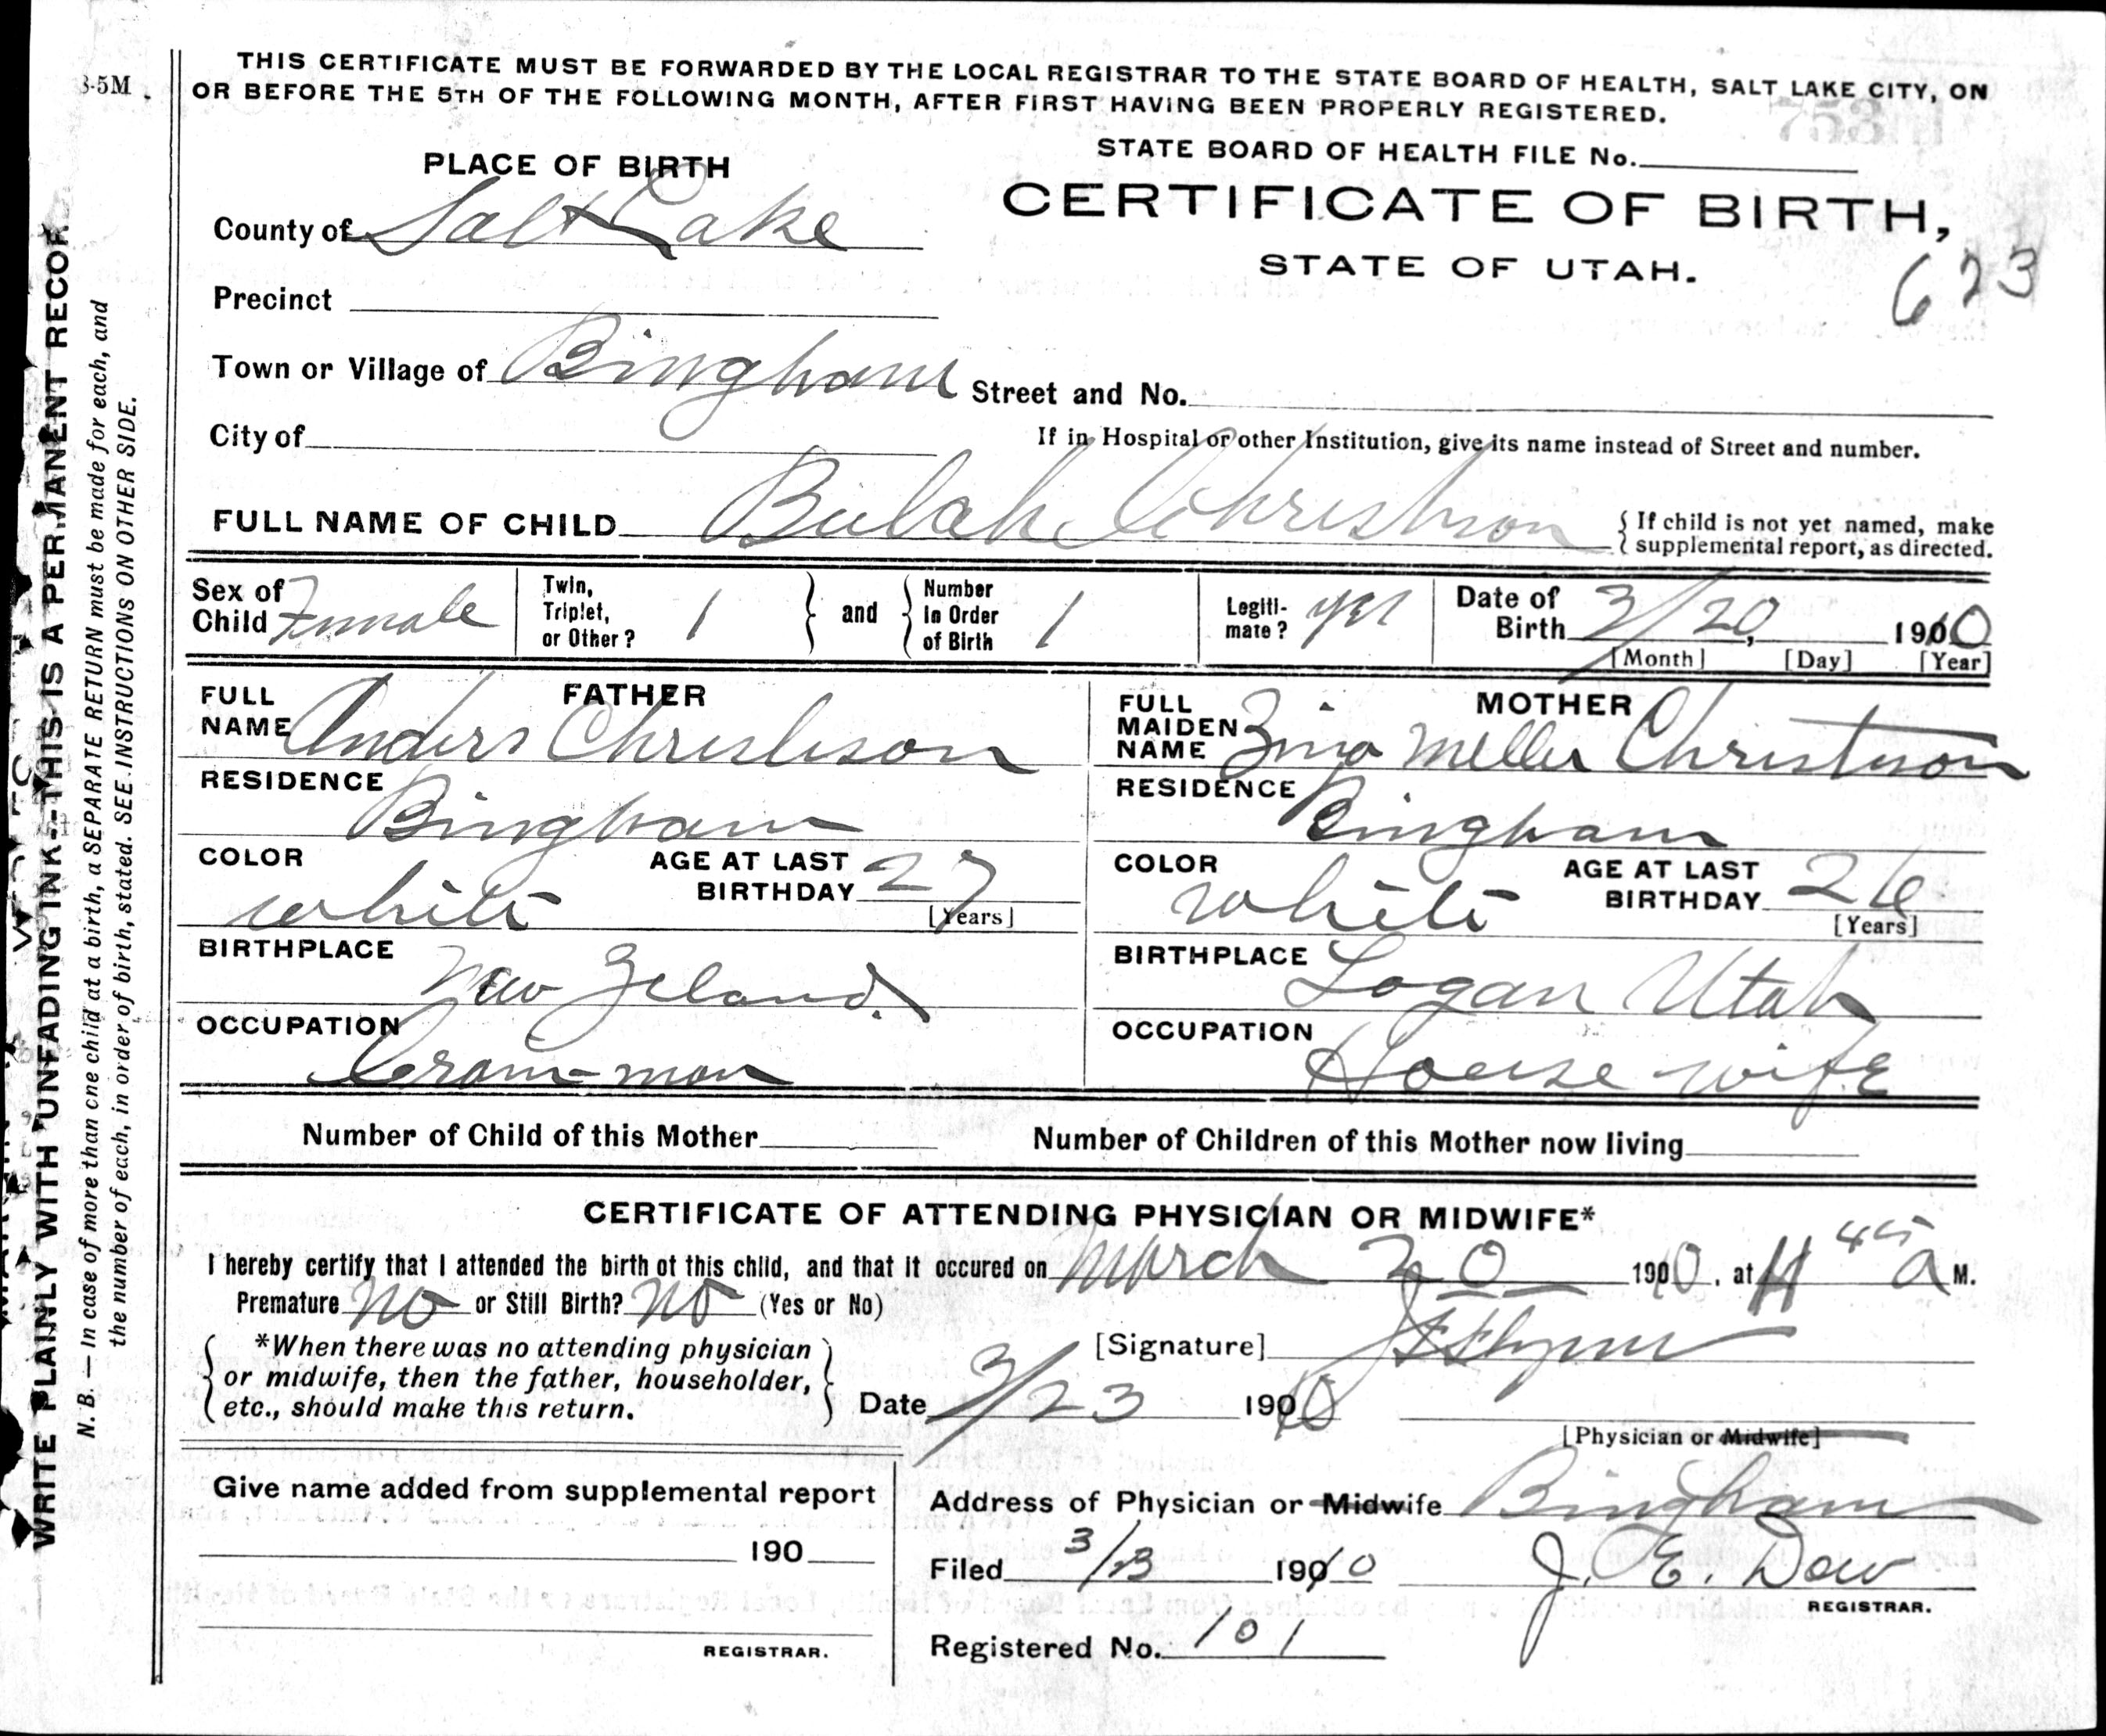 THIS CERTIFICATE MUST BE FORWARDED BY THE LOCAL REGISTRAR TO THE STATE BOARD OF HEALTH, SALT LAKE CITY, ON
OR BEFORE THE 5TH OF THE FOLLOWING MONTH, AFTER FIRST HAVING BEEN PROPERLY REGISTERED.
3-5M
STATE BOARD OF HEALTH FILE No.
CERTIFICATE OF BIRTH,
STATE OF UTAH.
623
PLACE OF BIRTH
County of Salt Lake
Precinct
Town or Village of Bingham Street and No.
City of If in Hospital or other Institution, give its name instead of Street and number.
FULL NAME OF CHILD Bulah Christison { If child is not yet named, make
supplemental report, as directed.
Sex of Child Female Twin, Triplet, or Other? 1 } and { Number In Order of Birth 1 Legiti-mate? yes Date of Birth 3/20, 1910
[Month] [Day] [Year]
FATHER
FULL NAME Anders Christison
RESIDENCE
Bingham
COLOR white AGE AT LAST BIRTHDAY 27
[Years]
BIRTHPLACE
New Zeland.
OCCUPATION
MOTHER
FULL MAIDEN NAME Zina Meller Christison
RESIDENCE
Bingham
COLOR white AGE AT LAST BIRTHDAY 26
[Years]
BIRTHPLACE
Logan Utah
OCCUPATION
House wife
Number of Child of this Mother Number of Children of this Mother now living
CERTIFICATE OF ATTENDING PHYSICIAN OR MIDWIFE*
I hereby certify that I attended the birth of this child, and that it occured on March 20 1910, at 4 45 a M.
Premature No or Still Birth? No (Yes or No)
*When there was no attending physician
or midwife, then the father, householder,
etc., should make this return.
[Signature]
Date 3/23 1910
[Physician or Midwife]
Address of Physician or Midwife Bingham
Filed 3/23 1910 J. E. Dow
REGISTRAR.
Registered No. 101
Give name added from supplemental report
190
REGISTRAR.
WRITE PLAINLY WITH UNFADING INK--THIS IS A PERMANENT RECOR
N. B.—In case of more than one child at a birth, a SEPARATE RETURN must be made for each, and
the number of each, in order of birth, stated. SEE INSTRUCTIONS ON OTHER SIDE.